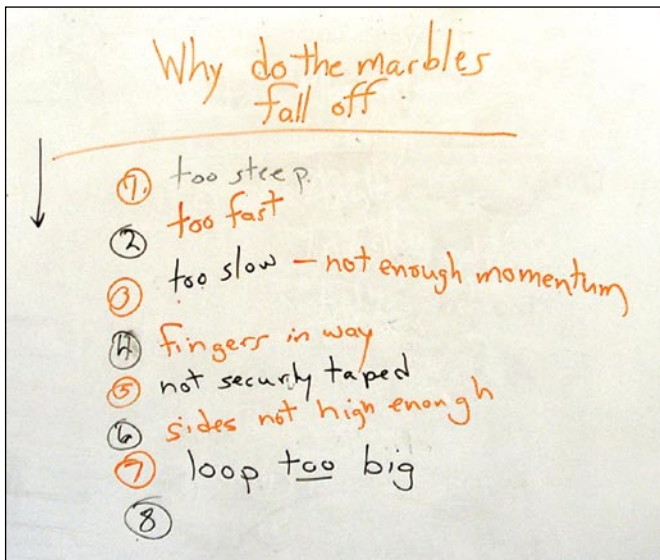 Why do the marbles
fall off
1. too steep.
2 too fast
3 too slow – not enough momentum
4 fingers in way
5 not securly taped
6 sides not high enough
7 loop too big
8